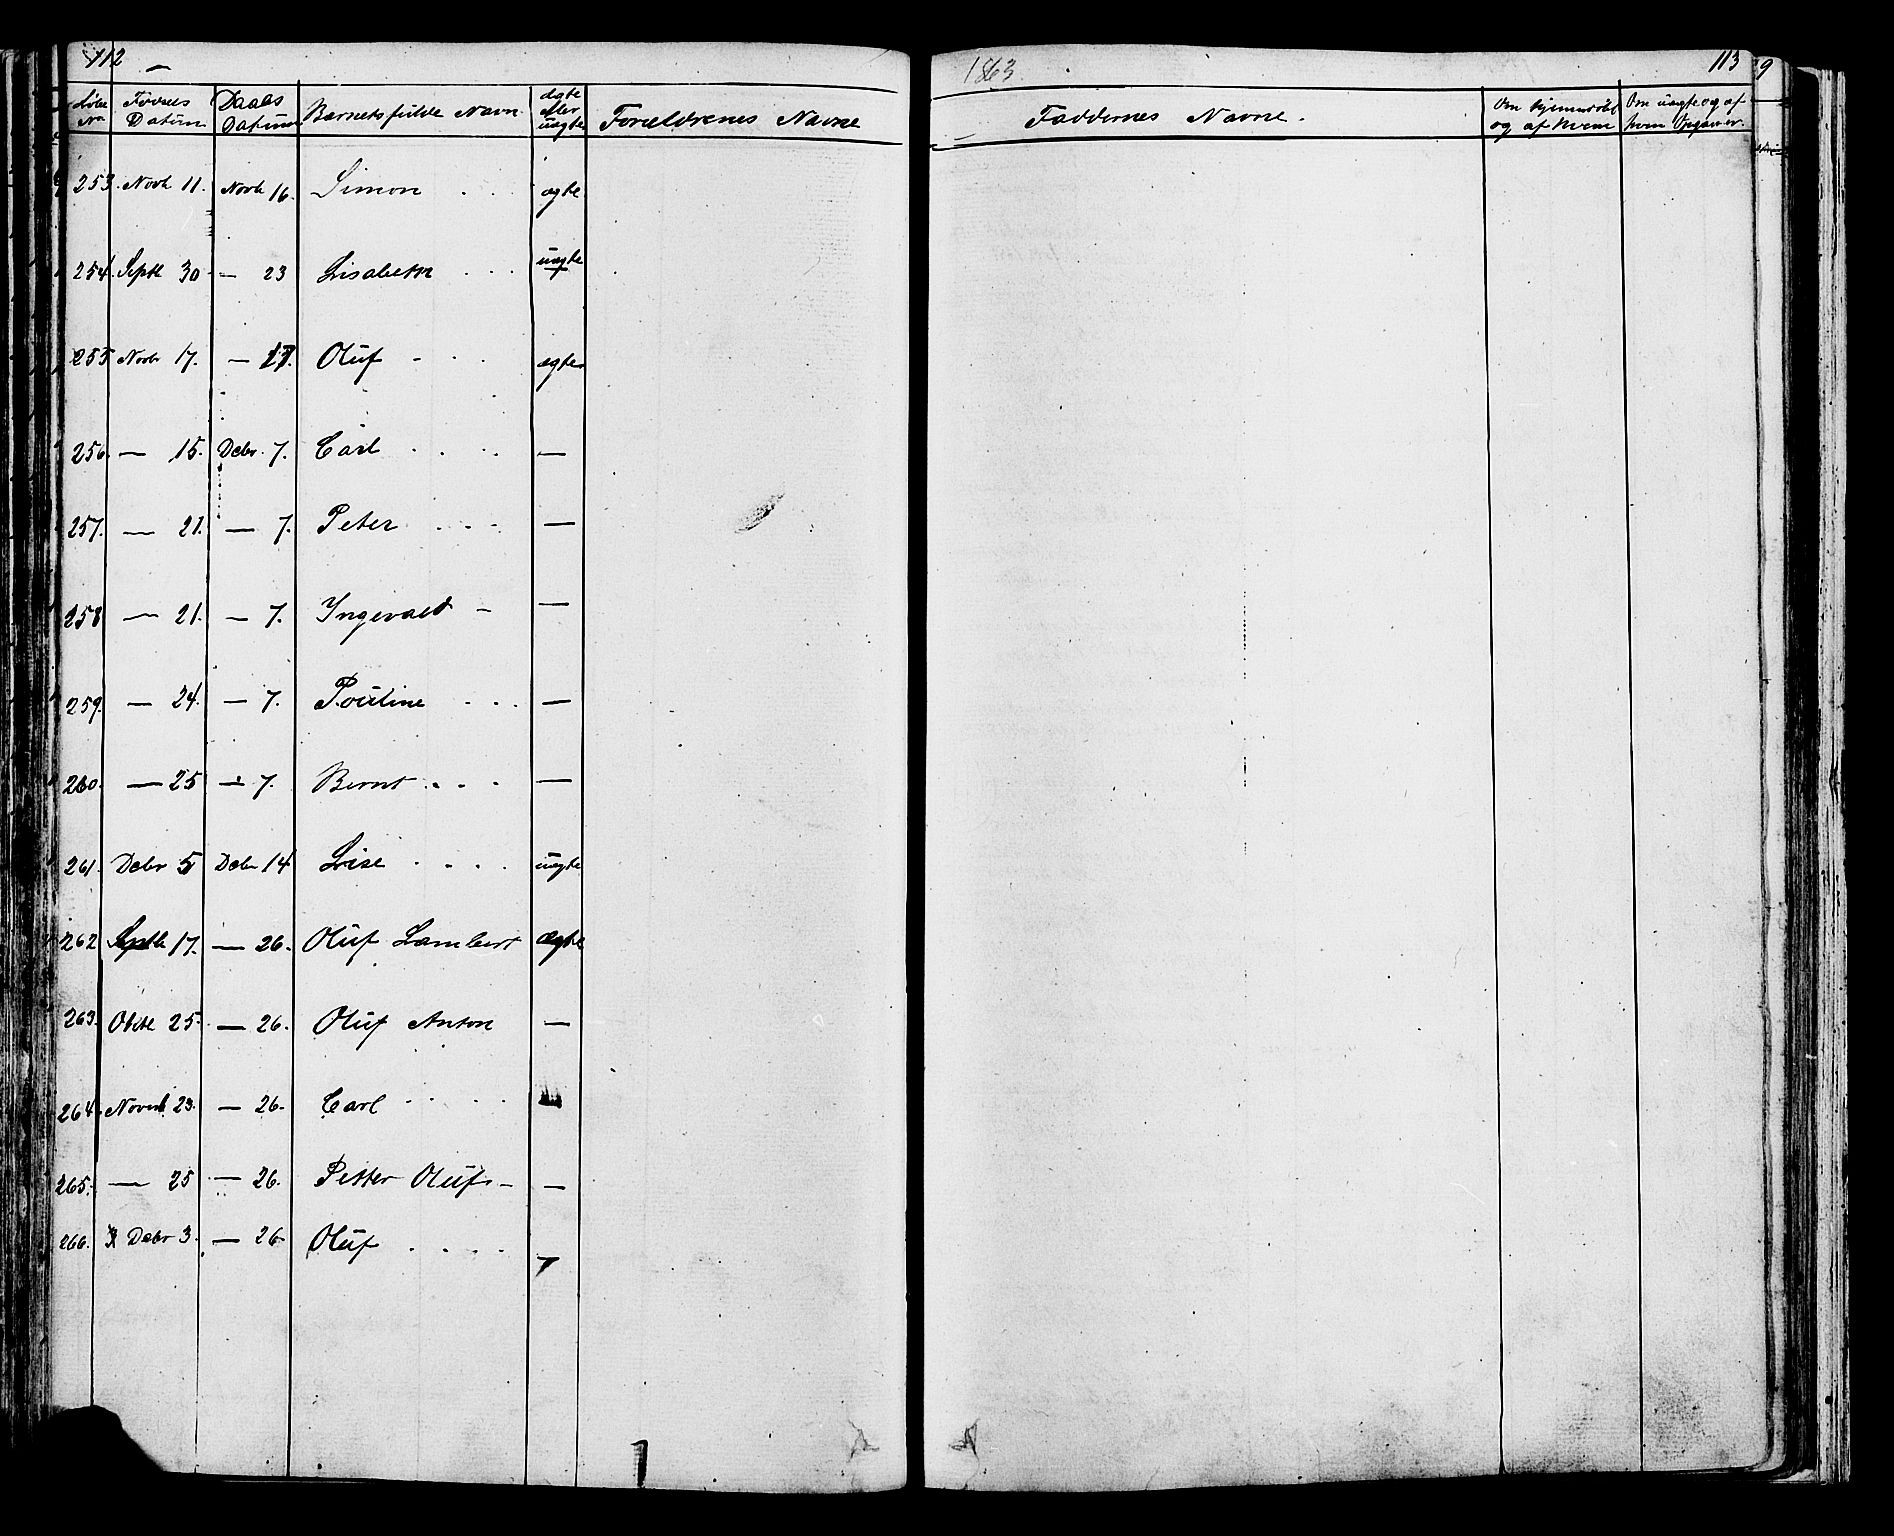 112
Løbe No Fødsels Datum Daabs Datum Barnets fulde Navn ægte eller uægte Forældrenes Navne
253. Novb 11. Novb 16. Simon . . . ægte
254. Septb 30 — 23 Lisabeth . . . uægte
255 Novbr 17. — 17. Oluf - . . ægte
256. — 15. Debr. 7. Carl . . . . —
257. — 21. — 7. Peter . . . —
258 — 21. — 7. Ingevald - —
259. — 24. — 7. Pouline . . . —
260. — 25 — 7. Bernt . . . —
261. Debr 5 Debr 14 Lise . . . . uægte
262 Septb 17. — 26. Oluf Lambert ægte
263. Obtb 25. — 26. Oluf Anton —
264. Novemb 23. — 26. Carl . . . .
265. — 25 — 26. Petter Oluf. - —
266. Debr 3. — 26 Oluf . . . .
1863.
113
Faddernes Navne.
Om hjemmedøbt og af hvem
Om uægte og af hvem Opgav er.
9